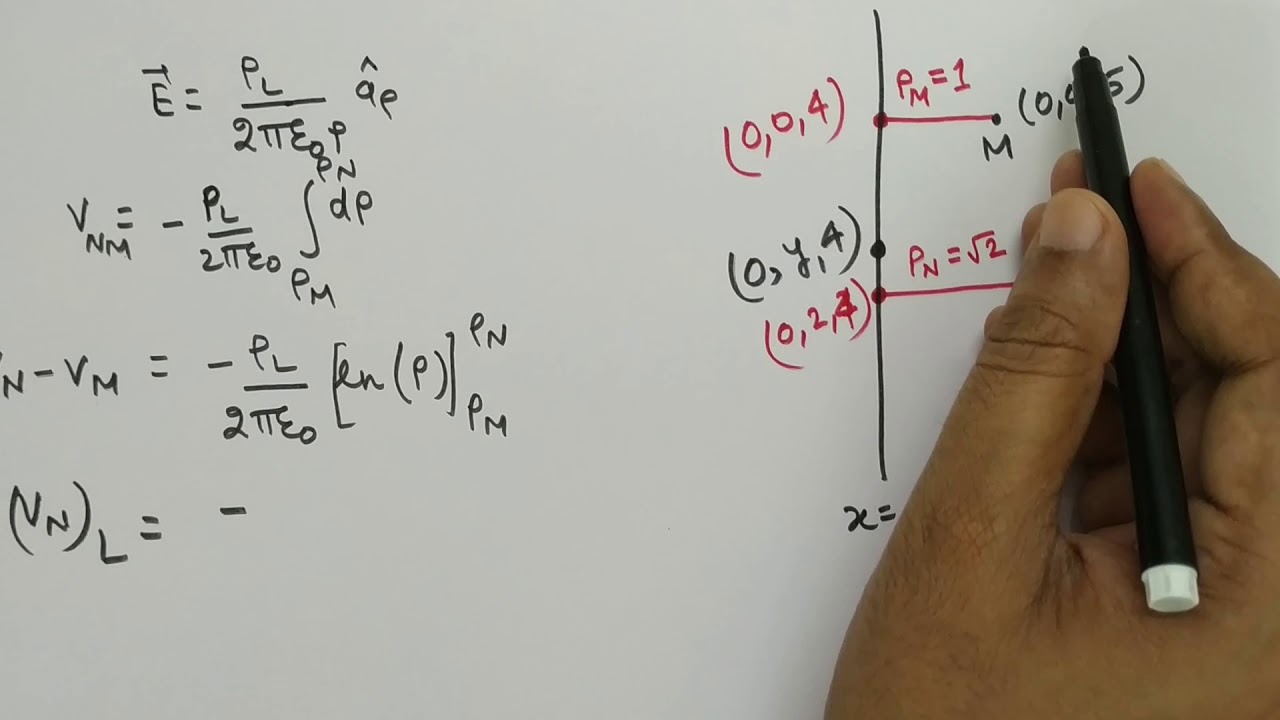 E⃗ = ρL / 2πε₀ρ âρ
V_NM = - ρL / 2πε₀ ∫_ρM^ρN dρ
N - V_M = -ρL / 2πε₀ [ln(ρ)]_ρM^ρN
(V_N)_L = -
ρM = 1
(0,0,4)
M
(0,
5)
(0, y, 4)
ρN = √2
(0, 2, 4)
x =